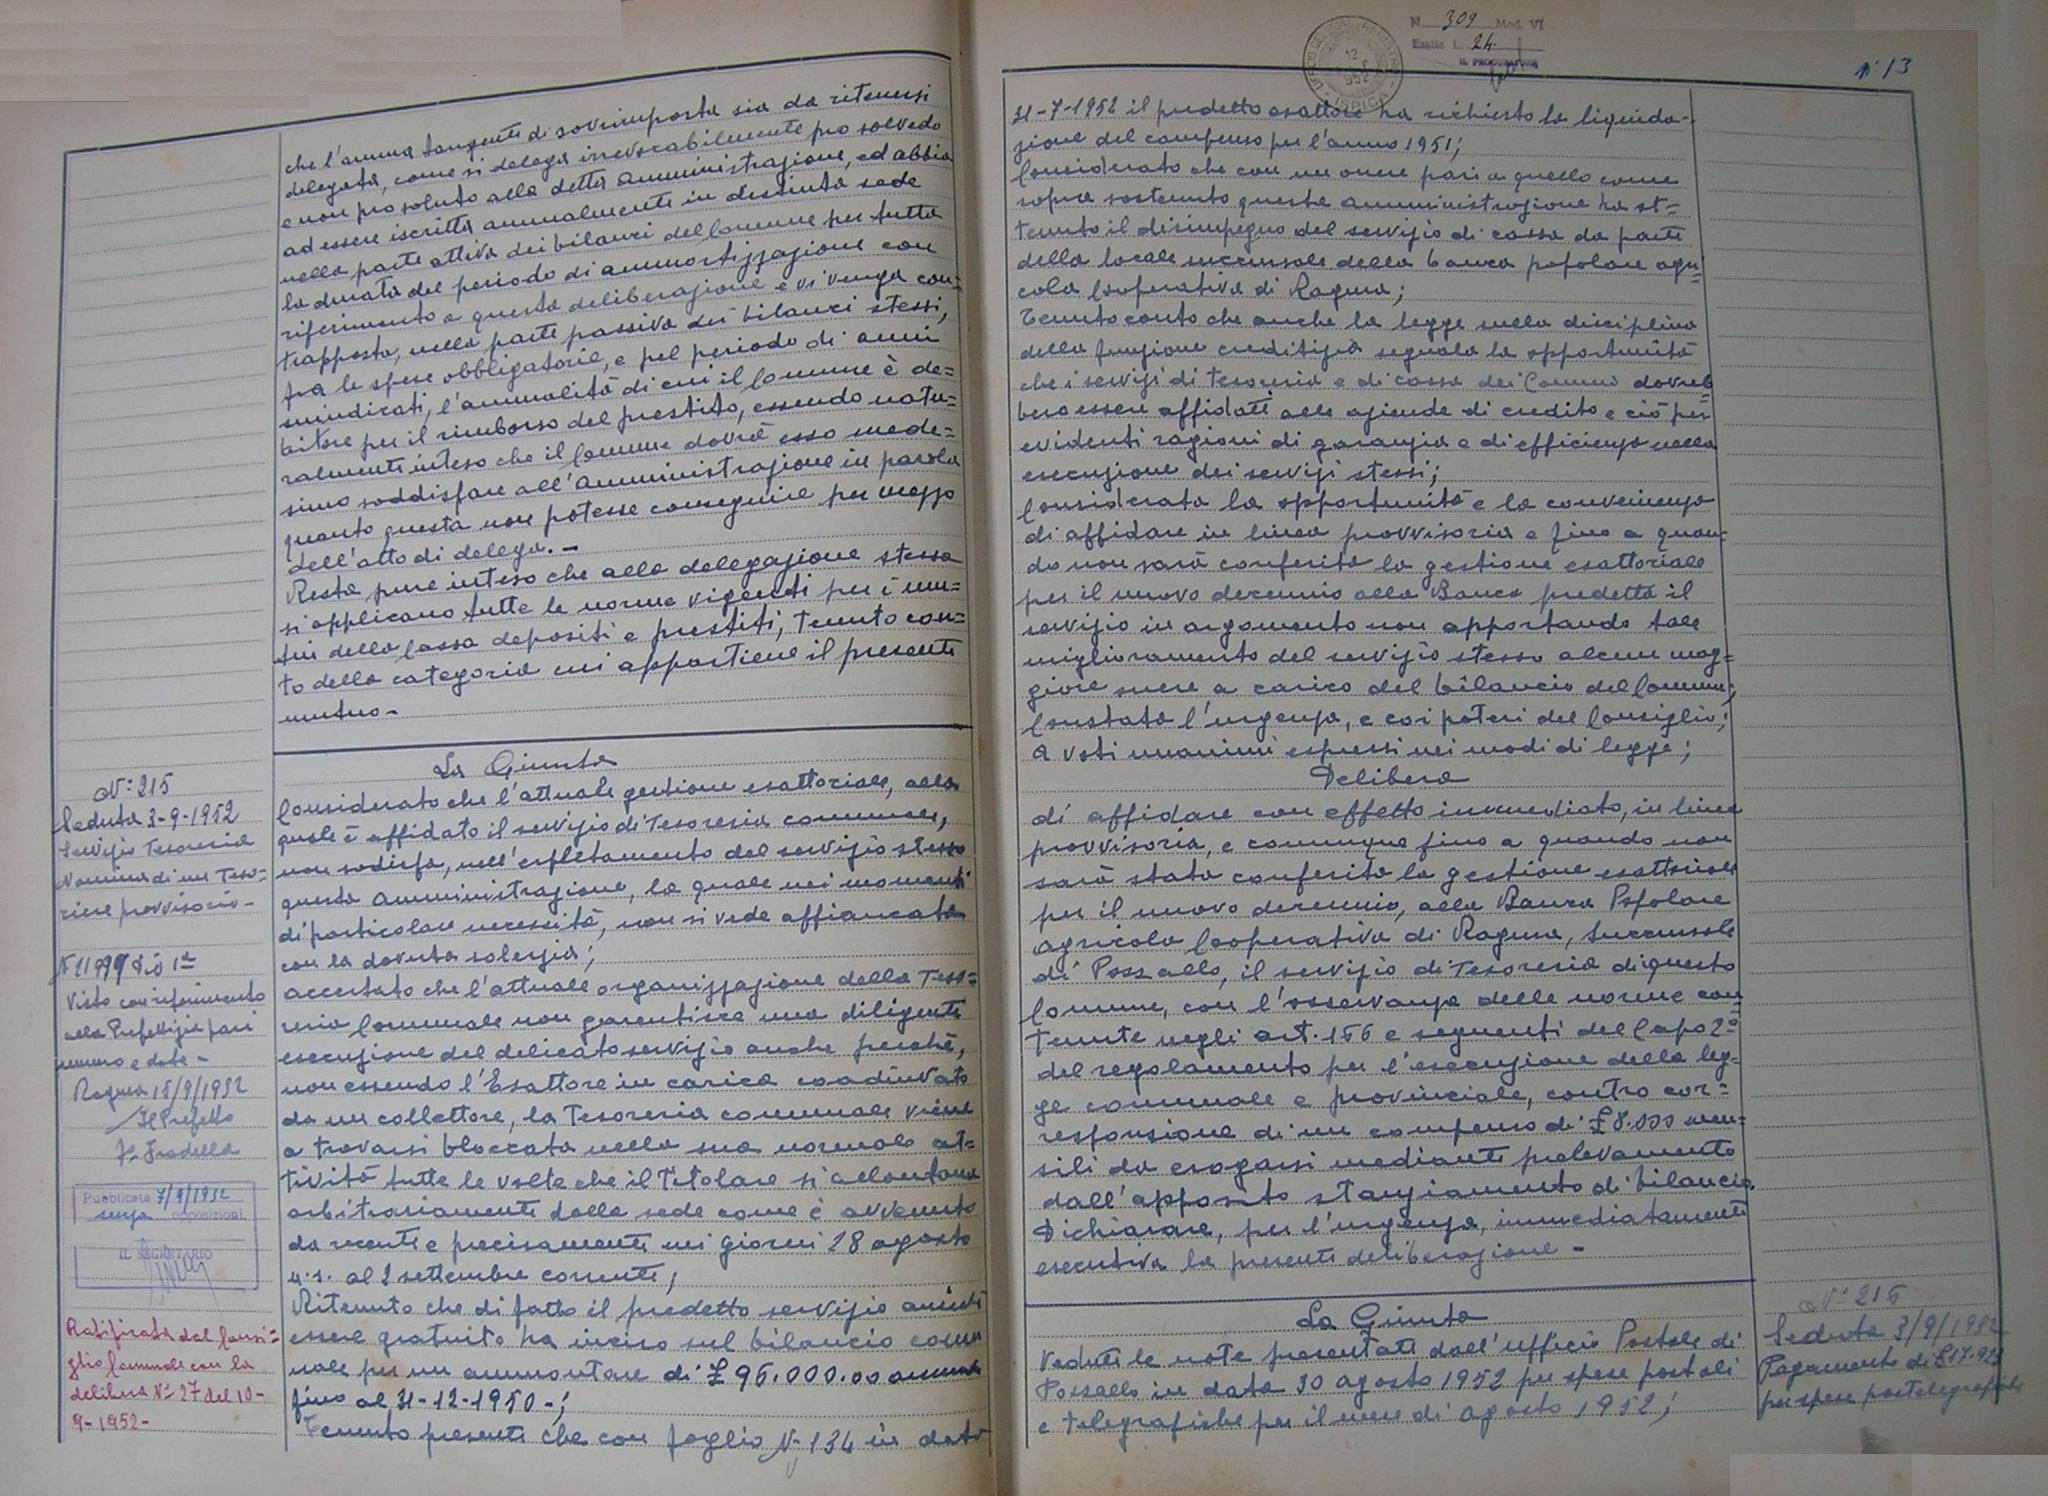 che l'annua tangente di sovrimposta sia da ritenersi
delegata, come si delega irrevocabilmente pro solvendo
e non pro soluto alla detta amministrazione, ed abbia
ad essere iscritta annualmente in distinta sede
nella parte attiva dei bilanci del Comune per tutta
la durata del periodo di ammortizzazione con
riferimento a questa deliberazione e vi venga con=
trapposta, nella parte passiva dei bilanci stessi,
fra le spese obbligatorie, e pel periodo di anni
suindicati, l'annualità di cui il Comune è de=
bitore per il rimborso del prestito, essendo natu=
ralmente inteso che il Comune dovrà esso mede=
simo soddisfare all'Amministrazione in parola
quanto questa non potesse conseguire per mezzo
dell'atto di delega. -
Resta pure inteso che alla delegazione stessa
si applicano tutte le norme vigenti per i mu=
tui della Cassa depositi e prestiti, tenuto con=
to della categoria cui appartiene il presente
mutuo -
N° 215
Seduta 3-9-1952
Servizio Tesoreria
Nomina di un Teso=
riere provvisorio -
Visto con riferimento
alla Prefettizia pari
numero e data -
Ragusa 15/9/1952
Il Prefetto
Pubblicata 7/9/1952
senza opposizioni.
IL SEGRETARIO
Ratificata dal Consi=
glio Comunale con la
delibera N° 27 del 10-
9-1952-
La Giunta
Considerato che l'attuale gestione esattoriale, alla
quale è affidato il servizio di Tesoreria comunale,
non sodisfa, nell'espletamento del servizio stesso
questa Amministrazione, la quale nei momenti
di particolare necessità, non si vede affiancata
con la dovuta solerzia;
accertato che l'attuale organizzazione della Teso=
reria Comunale non garentisce una diligente
esecuzione del delicato servizio anche perchè,
non essendo l'Esattore in carica coadiuvato
da un collettore, la Tesoreria comunale viene
a trovarsi bloccata nella sua normale at=
tività tutte le volte che il Titolare si allontana
arbitrariamente dalla sede come è avvenuto
da recente e precisamente nei giorni 28 agosto
u.s. al 2 settembre corrente;
Ritenuto che di fatto il predetto servizio anzichè
essere gratuito ha inciso sul bilancio comu
nale per un ammontare di £ 96.000.00 annuale
fino al 31-12-1950-;
Tenuto presente che con foglio N. 134 in data
N. 309 Mod. VI
Esatte L. 24.
IL PROCURATORE
UFFICIO DEL REGISTRO
12
952
ISPICA
N° 13
31-7-1952 il predetto esattore ha richiesto la liquida-
zione del compenso per l'anno 1951;
Considerato che con un onere pari a quello come
sopra sostenuto questa amministrazione ha ot=
tenuto il disimpegno del servizio di cassa da parte
della locale succursale della banca popolare agri
cola Cooperativa di Ragusa;
Tenuto conto che anche la legge sulla disciplina
della funzione creditizia segnala la opportunità
che i servizi di tesoreria e di cassa dei Comuni dovreb
bero essere affidati alle aziende di credito e ciò per
evidenti ragioni di garanzia e di efficienza nella
esecuzione dei servizi stessi;
Considerata la opportunità e la convenienza
di affidare in linea provvisoria e fino a quan=
do non sarà conferita la gestione esattoriale
per il nuovo decennio alla Banca predetta il
servizio in argomento non apportando tale
miglioramento del servizio stesso alcun mag=
giore onere a carico del bilancio del Comune;
Constatata l'urgenza, e coi poteri del Consiglio;
a voti unanimi espressi nei modi di legge;
Delibera
di affidare con effetto immediato, in linea
provvisoria, e comunque fino a quando non
sarà stata conferita la gestione esattoriale
per il nuovo decennio, alla Banca Popolare
Agricola Cooperativa di Ragusa, succursale
di Pozzallo, il servizio di Tesoreria di questo
Comune, con l'osservanza delle norme con
tenute negli art. 166 e seguenti del Capo 2°
del regolamento per l'esecuzione della leg=
ge comunale e provinciale, contro cor=
responsione di un compenso di £ 8.000 men=
sili da erogarsi mediante prelevamento
dall'apposito stanziamento di bilancio.
Dichiarare, per l'urgenza, immediatamente
esecutiva la presente deliberazione -
N° 216
Seduta 3/9/1952
Pagamento di £ 17.923
per spese postelegrafiche
La Giunta
Vedute le note presentate dall'ufficio Postale di
Pozzallo in data 30 agosto 1952 per spese postali
e telegrafiche per il mese di agosto 1952;